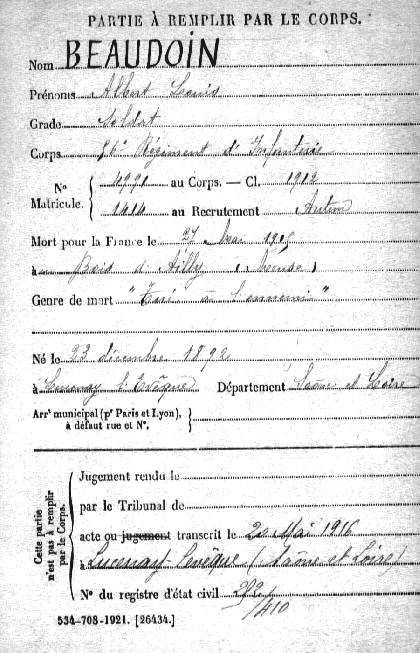 PARTIE À REMPLIR PAR LE CORPS.
Nom BEAUDOIN
Prénoms Albert Louis
Grade Soldat
Corps 56e Régiment d'Infanterie
No Matricule. 4991 au Corps. — Cl. 1912
1414 au Recrutement Autun
Mort pour la France le 27 Mai 1915
à Bois d'Ailly (Meuse)
Genre de mort "Tué à l'ennemi"
Né le 23 décembre 1892
à Lucenay l'Evêque Département Saône et Loire
Arrt municipal (pr Paris et Lyon), à défaut rue et No.
Cette partie n'est pas à remplir par le Corps.
Jugement rendu le
par le Tribunal de
acte ou jugement transcrit le 20 Mai 1916
à Lucenay Levêque (Saône et Loire)
No du registre d'état civil
534-708-1921. [26434.]